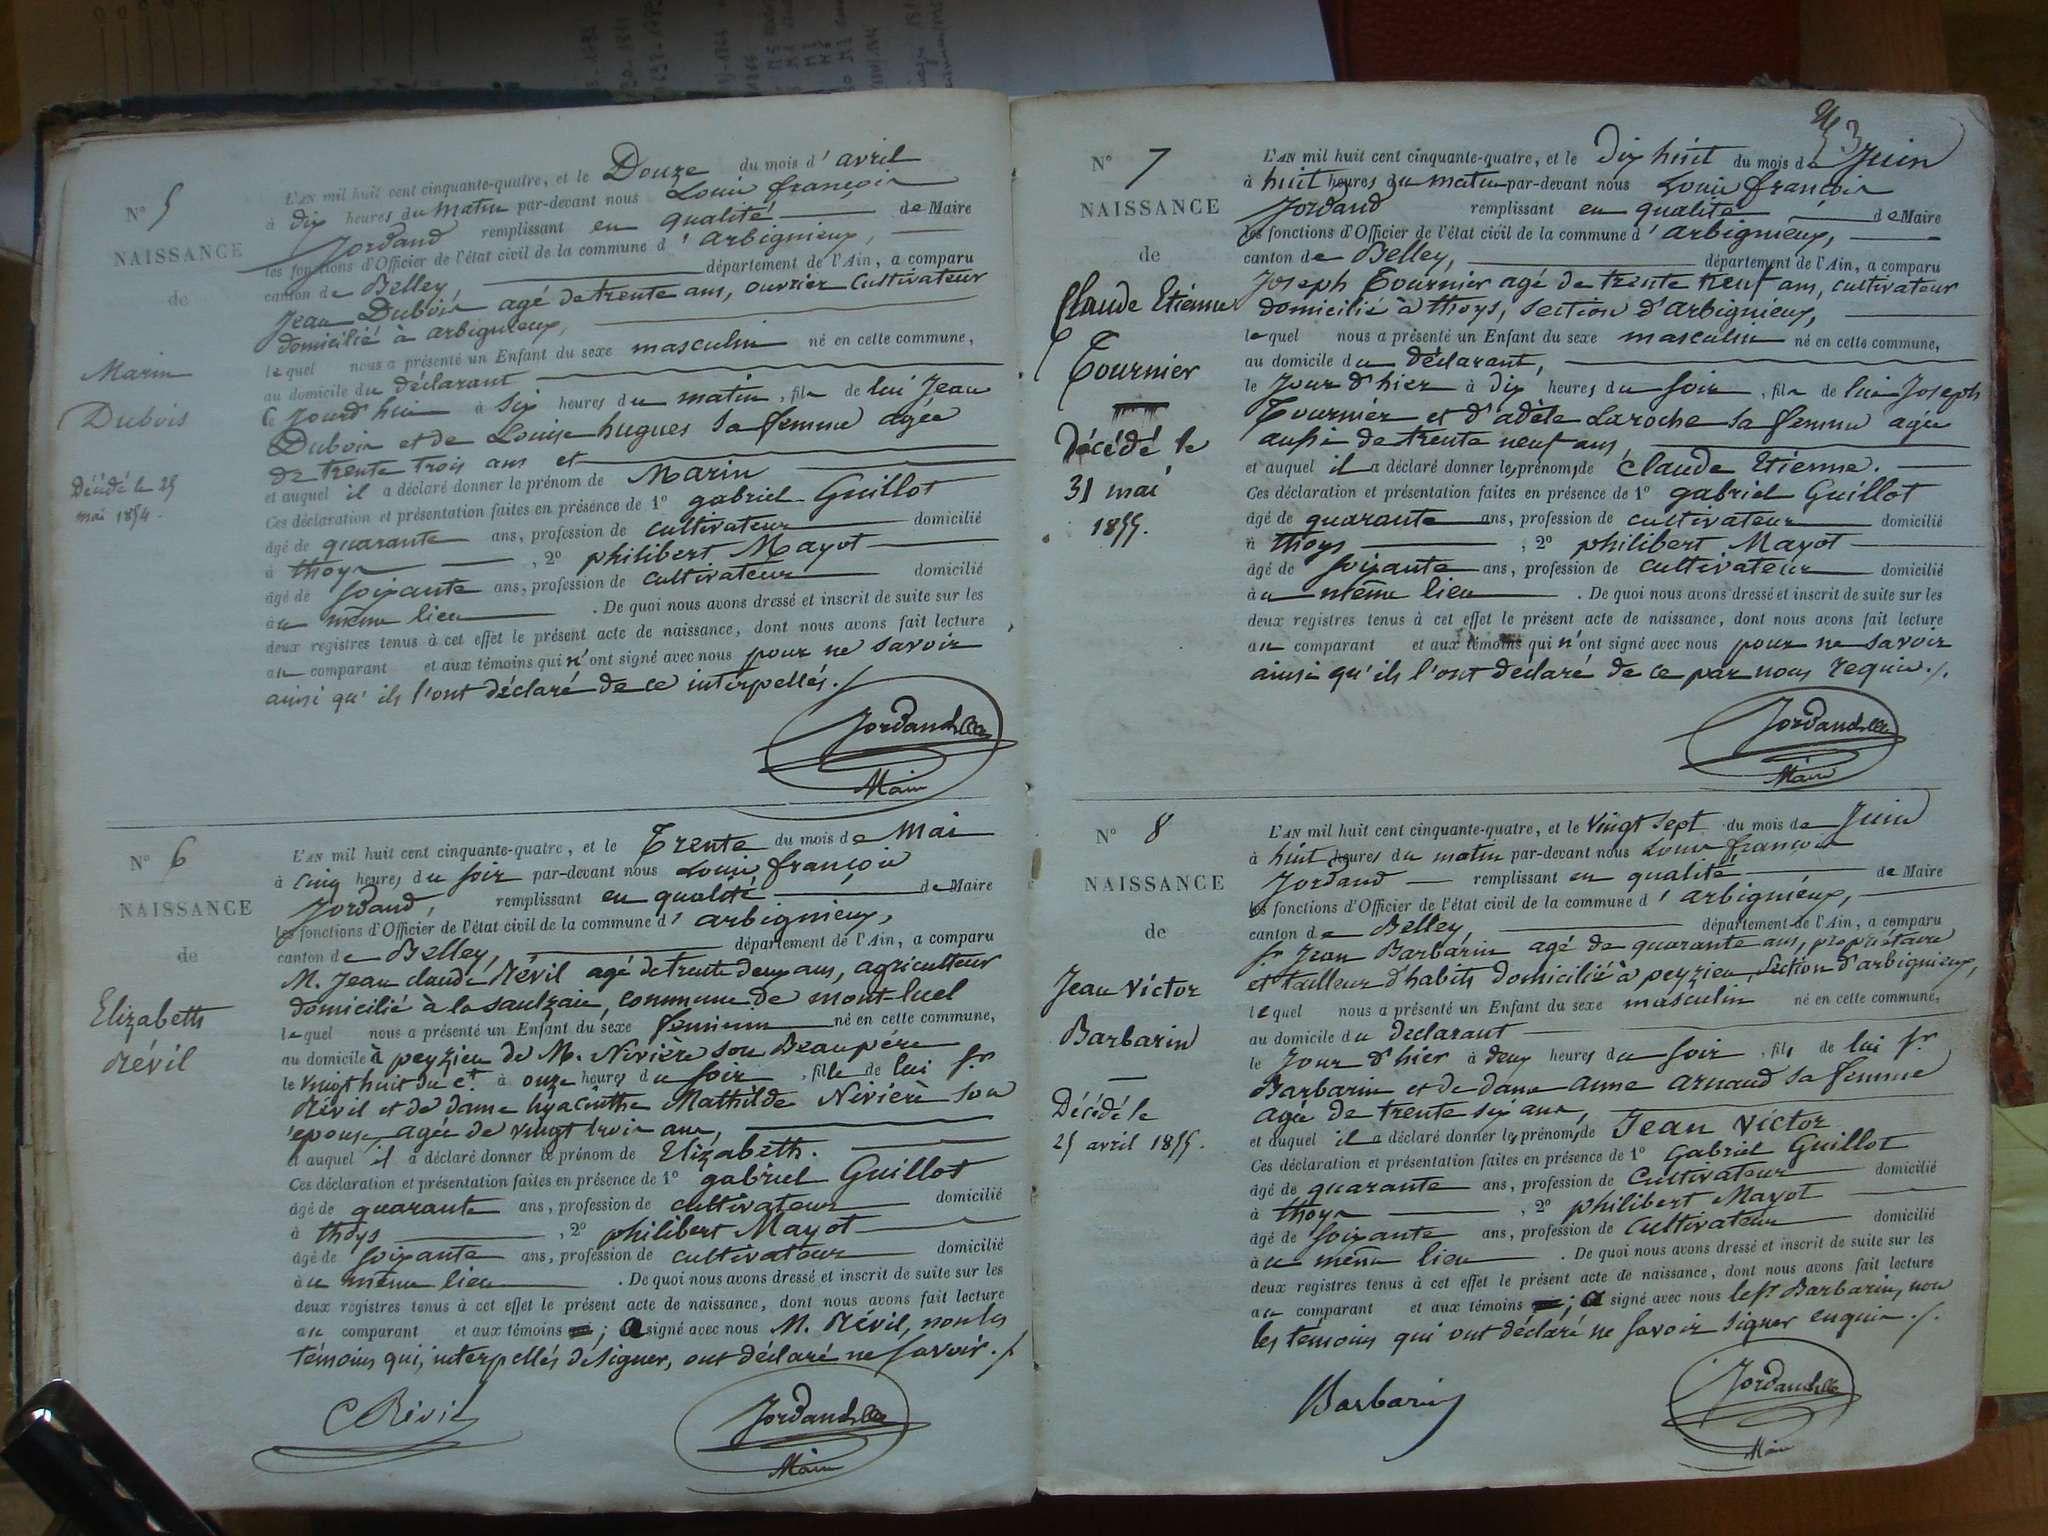 N° 5
NAISSANCE
de
Marin
Dubois
Décédé le 25
mai 1854.
L'AN mil huit cent cinquante-quatre, et le Douze du mois d'avril
à dix heures du matin par-devant nous Louis françois
Jordand remplissant en qualité de Maire
les fonctions d'Officier de l'état civil de la commune d'Arbignieux,
canton de Belley, département de l'Ain, a comparu
Jean Dubois agé de trente ans, ouvrier cultivateur
domicilié à arbignieux,
lequel nous a présenté un Enfant du sexe masculin né en cette commune,
au domicile du déclarant
le Jourd'hui à six heures du matin, fils de lui Jean
Dubois et de Louise hugues sa femme agée
de trente trois ans et
et auquel il a déclaré donner le prénom de Marin
Ces déclaration et présentation faites en présence de 1° gabriel Guillot
âgé de quarante ans, profession de cultivateur domicilié
à thoys, 2° philibert Mayot
âgé de soixante ans, profession de cultivateur domicilié
au même lieu. De quoi nous avons dressé et inscrit de suite sur les
deux registres tenus à cet effet le présent acte de naissance, dont nous avons fait lecture
au comparant et aux témoins qui n'ont signé avec nous pour ne savoir
ainsi qu'ils l'ont déclaré de ce interpellés./
Jordand
Maire
N° 6
NAISSANCE
de
Elizabeth
Révil
L'AN mil huit cent cinquante-quatre, et le Trente du mois de Mai
à cinq heures du soir par-devant nous Louis françois
Jordand, remplissant en qualité de Maire
les fonctions d'Officier de l'état civil de la commune d'arbignieux,
canton de Belley, département de l'Ain, a comparu
M. Jean claude Révil agé de trente deux ans, agriculteur
domicilié à la saulzaie, commune de mont-luel
lequel nous a présenté un Enfant du sexe feminin né en cette commune,
au domicile à peyzieu de M. Nivière son Beaupére
le vingt huit du ct. à onze heures du soir, fille de lui Sr
Révil et de dame hyacinthe Mathilde Nivière son
épouse, agée de vingt trois ans,
et auquel il a déclaré donner le prénom de Elizabeth.
Ces déclaration et présentation faites en présence de 1° gabriel Guillot
âgé de quarante ans, profession de cultivateur domicilié
à thoys, 2° philibert Mayot
âgé de soixante ans, profession de cultivateur domicilié
au même lieu. De quoi nous avons dressé et inscrit de suite sur les
deux registres tenus à cet effet le présent acte de naissance, dont nous avons fait lecture
au comparant et aux témoins ; a signé avec nous M. Révil, non les
témoins qui, interpellés de signer, ont déclaré ne savoir./
C Révil
Jordand
Maire
3
N° 7
NAISSANCE
de
Claude Etienne
Tournier
Décédé le
31 mai
1855.
L'AN mil huit cent cinquante-quatre, et le Dix huit du mois de Juin
à huit heures du matin par-devant nous Louis françois
Jordand remplissant en qualité de Maire
les fonctions d'Officier de l'état civil de la commune d'arbignieux,
canton de Belley, département de l'Ain, a comparu
Joseph Tournier agé de trente neuf ans, cultivateur
domicilié à thoys, section d'arbignieux,
lequel nous a présenté un Enfant du sexe masculin né en cette commune,
au domicile du déclarant,
le Jour d'hier à dix heures du soir, fils de lui Joseph
Tournier et d'adèle Laroche sa femme agée
aussi de trente neuf ans,
et auquel il a déclaré donner les prénoms de Claude Etienne.
Ces déclaration et présentation faites en présence de 1° gabriel Guillot
âgé de quarante ans, profession de cultivateur domicilié
à thoys, 2° philibert Mayot
âgé de soixante ans, profession de cultivateur domicilié
au même lieu. De quoi nous avons dressé et inscrit de suite sur les
deux registres tenus à cet effet le présent acte de naissance, dont nous avons fait lecture
au comparant et aux témoins qui n'ont signé avec nous pour ne savoir
ainsi qu'ils l'ont déclaré de ce par nous requis./.
Jordand
Maire
N° 8
NAISSANCE
de
Jean Victor
Barbarin
Décédé le
25 avril 1855.
L'AN mil huit cent cinquante-quatre, et le vingt sept du mois de Juin
à huit heures du matin par-devant nous Louis françois
Jordand remplissant en qualité de Maire
les fonctions d'Officier de l'état civil de la commune d'arbignieux,
canton de Belley, département de l'Ain, a comparu
Sr Jean Barbarin agé de quarante ans, propriétaire
et tailleur d'habits domicilié à peyzieu, section d'arbignieux,
lequel nous a présenté un Enfant du sexe masculin né en cette commune,
au domicile du déclarant
le Jour d'hier à deux heures du soir, fils de lui Sr
Barbarin et de dame anne arnaud sa femme
agée de trente six ans,
et auquel il a déclaré donner les prénoms de Jean Victor
Ces déclaration et présentation faites en présence de 1° Gabriel Guillot
âgé de quarante ans, profession de Cultivateur domicilié
à thoys, 2° philibert Mayot
âgé de soixante ans, profession de cultivateur domicilié
au même lieu. De quoi nous avons dressé et inscrit de suite sur les
deux registres tenus à cet effet le présent acte de naissance, dont nous avons fait lecture
au comparant et aux témoins ; a signé avec nous le Sr Barbarin, non
les témoins qui ont déclaré ne savoir signer enquis./.
Barbarin
Jordand
Maire